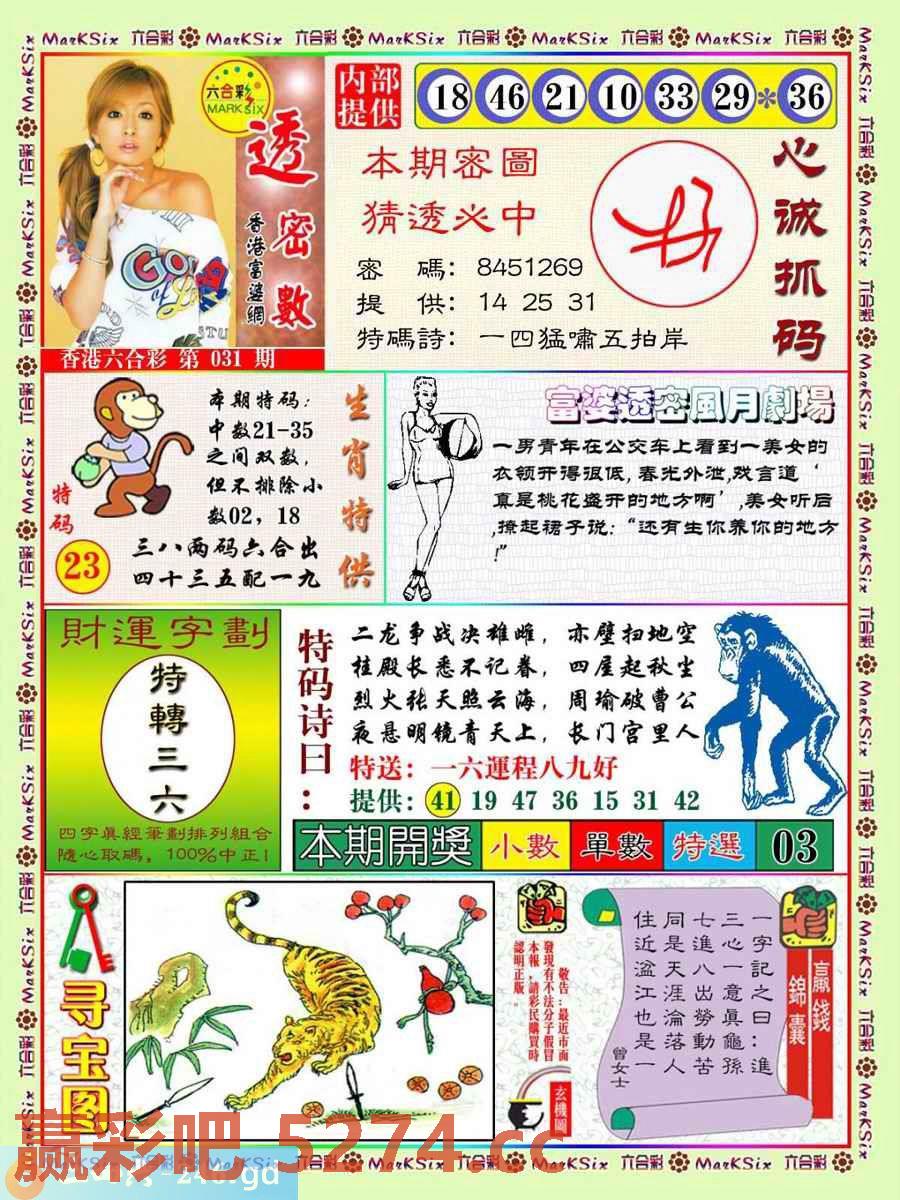 六合彩
MARK six
透密數
香港富婆網
香港六合彩 第 031 期
内部提供
18 46 21 10 33 29 * 36
本期密圖
猜透必中
密 碼：8451269
提 供：14 25 31
特碼詩：一四猛嘯五拍岸
心诚抓码
本期特码：
中数21-35
之间双数，
但不排除小
数02，18
三八两码六合出
四十三五配一九
特码
23
生肖特供
富婆透密風月劇場
一男青年在公交车上看到一美女的
衣领开得很低，春光外泄，戏言道‘
真是桃花盛开的地方啊’，美女听后
，撩起裙子说：“还有生你养你的地方
！”
財運字劃
特轉三六
四字真經筆劃排列組合
隨心取碼，100%中正！
特码诗曰：
二龙争战决雄雌，赤壁扫地空
桂殿长悉不记春，四屋起秋尘
烈火张天照云海，周瑜破曹公
夜悬明镜青天上，长门宫里人
特送：一六運程八九好
提供：41 19 47 36 15 31 42
本期開獎 小數 單數 特選 03
寻宝图
敬告：最近市面
發現有不法分子假冒
本報，請彩民購買時
認明正版。
玄機圖
一字記之曰：進
三心一意真龜孫
七進八出勞動苦
同是天涯淪落人
住近湓江也是一
曾女士
贏錢
錦囊
赢彩吧 5274.cc